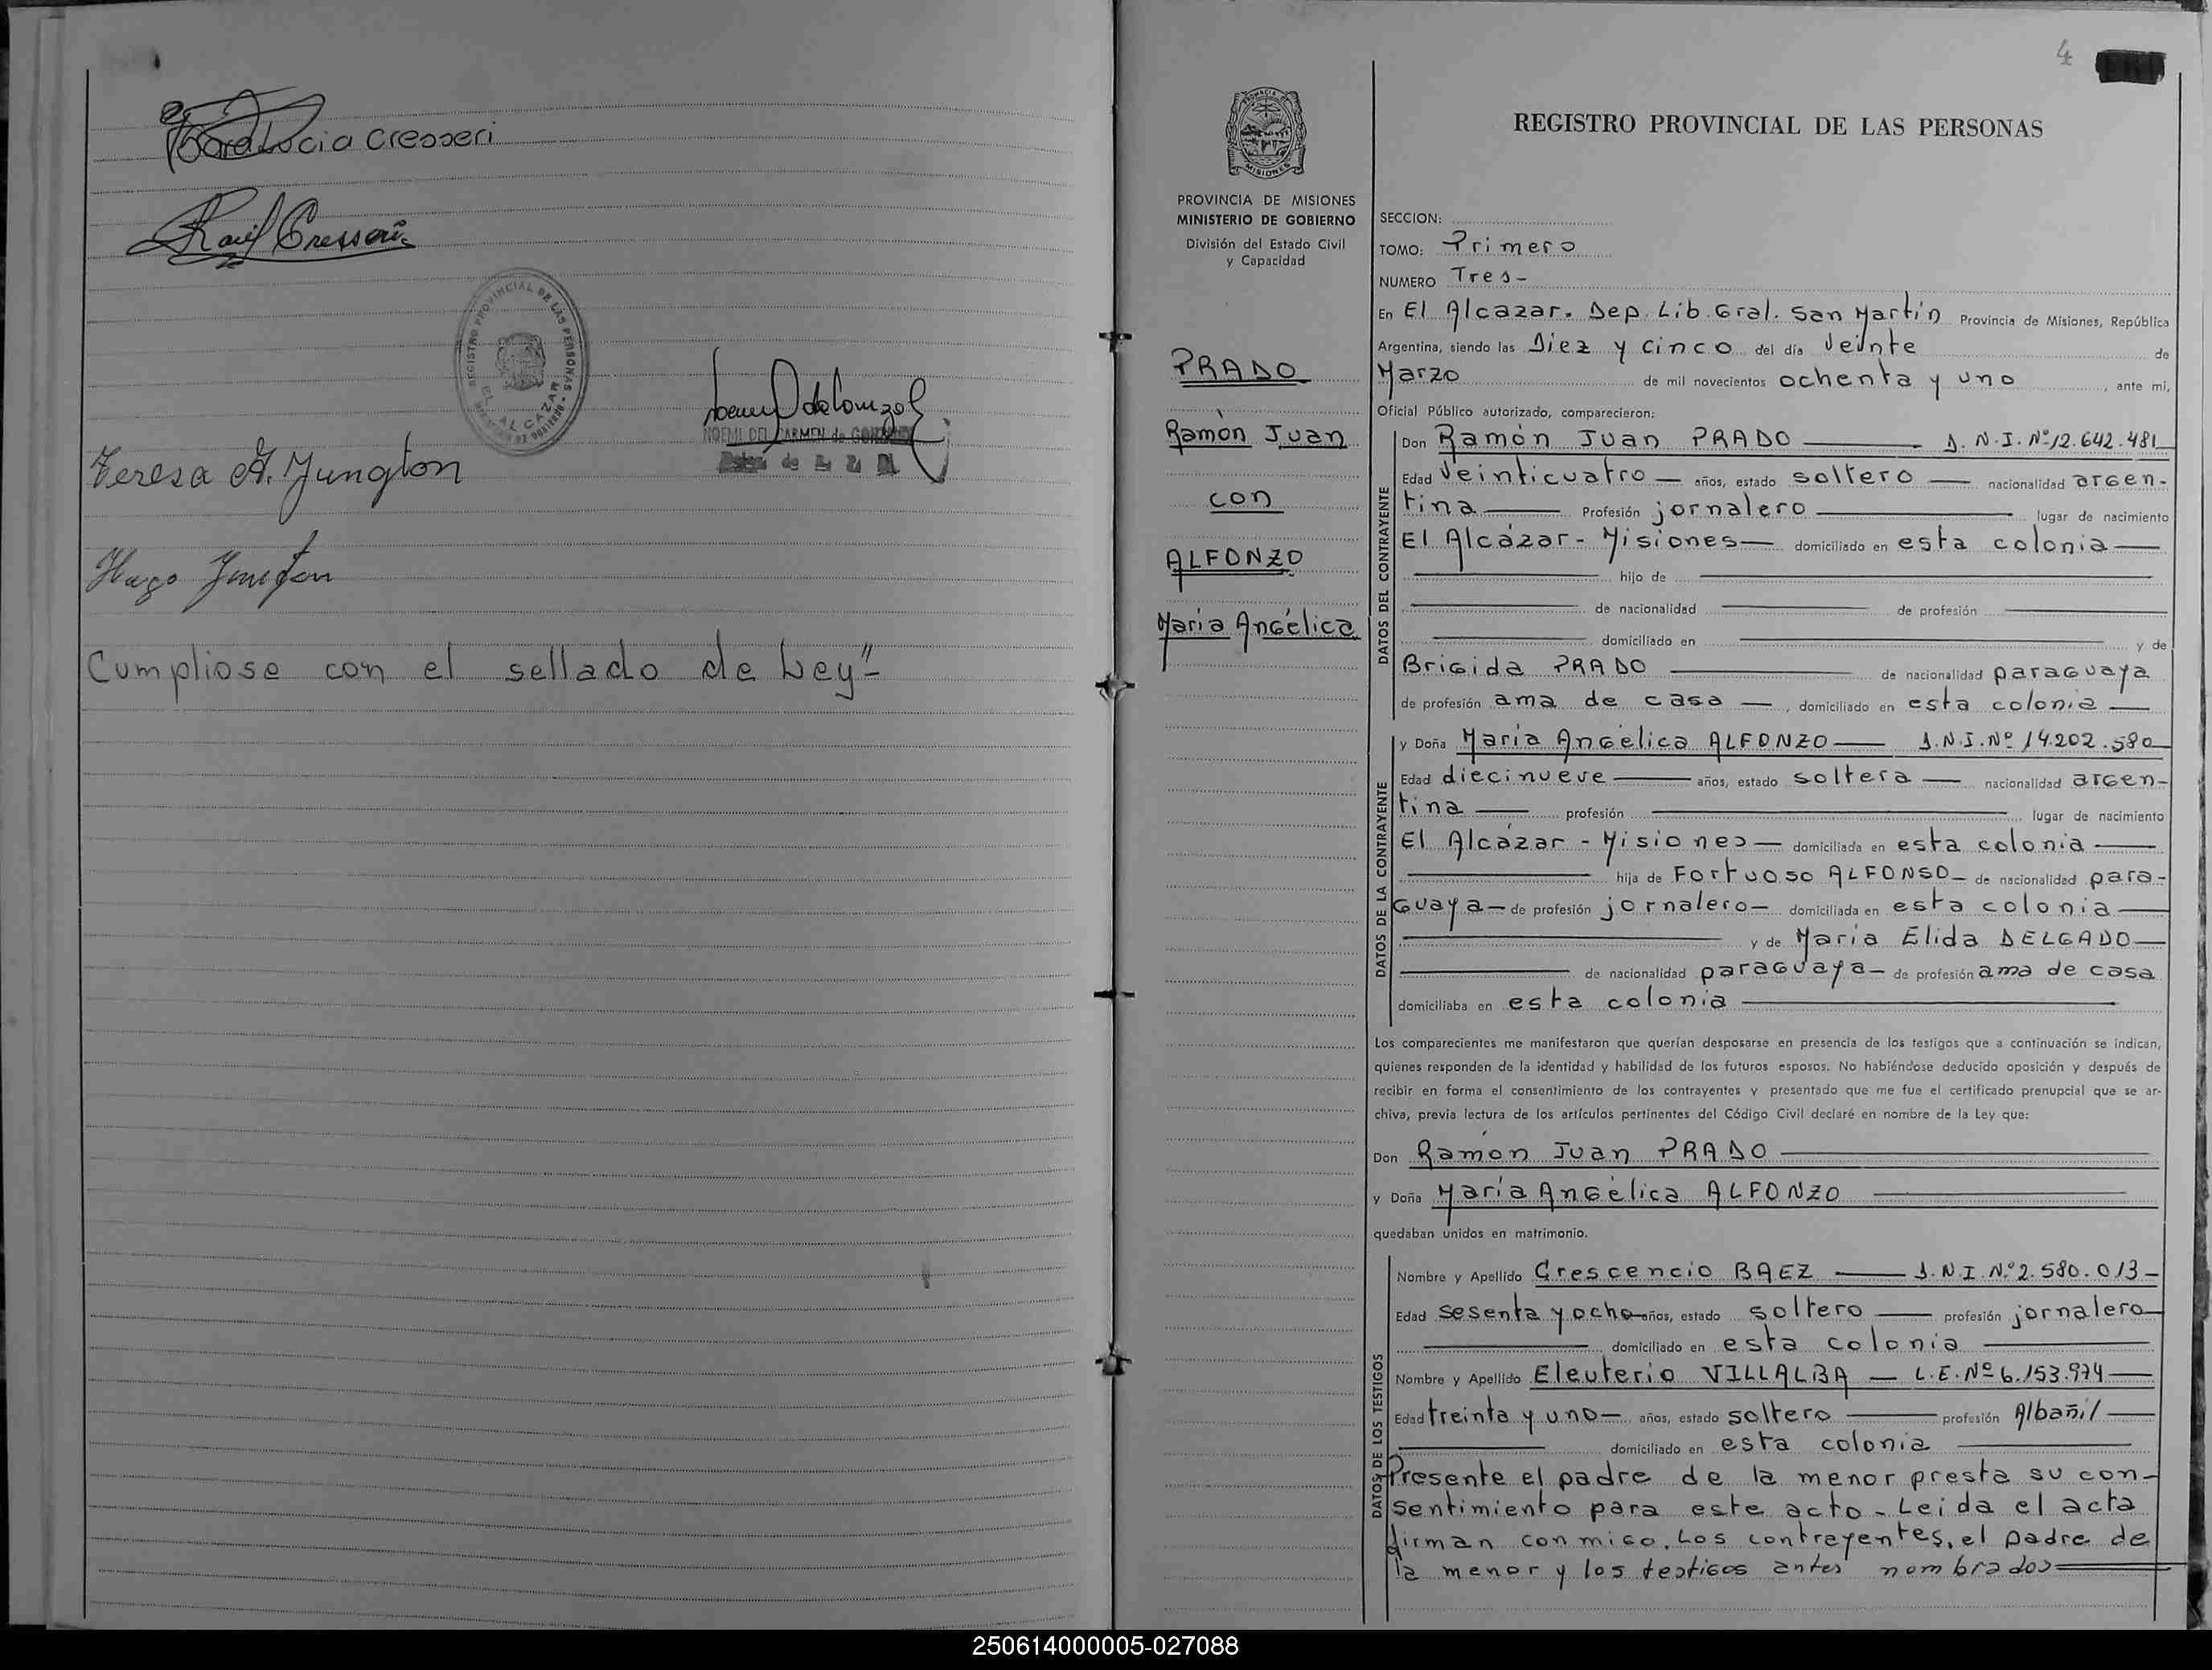 Lucia Cresseri
Raúl Cresseri
REGISTRO PROVINCIAL DE LAS PERSONAS
EL ALCAZAR
NOEMI DEL CARMEN de
Teresa A. Jungton
Hugo Jungton
Cumpliose con el sellado de Ley"-
4
PROVINCIA DE MISIONES
MINISTERIO DE GOBIERNO
División del Estado Civil
y Capacidad
PRADO
Ramón Juan
con
ALFONZO
María Angélica
REGISTRO PROVINCIAL DE LAS PERSONAS
SECCION:
TOMO: Primero
NUMERO Tres-
En El Alcazar. Dep. Lib. Gral. San Martín Provincia de Misiones, República
Argentina, siendo las Diez y cinco del día Veinte de
Marzo de mil novecientos ochenta y uno, ante mí,
Oficial Público autorizado, comparecieron:
DATOS DEL CONTRAYENTE
Don Ramón Juan PRADO — D.N.I. Nº 12.642.481
Edad Veinticuatro — años, estado soltero — nacionalidad argen-
tina — Profesión jornalero — lugar de nacimiento
El Alcázar - Misiones — domiciliado en esta colonia —
— hijo de —
— de nacionalidad — de profesión —
— domiciliado en — y de
Brigida PRADO — de nacionalidad paraguaya
de profesión ama de casa —, domiciliado en esta colonia —
DATOS DE LA CONTRAYENTE
y Doña María Angélica ALFONZO — D.N.I. Nº 14.202.580
Edad diecinueve — años, estado soltera — nacionalidad argen-
tina — profesión — lugar de nacimiento
El Alcázar - Misiones — domiciliada en esta colonia —
— hija de Fortuoso ALFONSO — de nacionalidad para-
guaya — de profesión jornalero — domiciliada en esta colonia —
— y de María Elida DELGADO —
— de nacionalidad paraguaya — de profesión ama de casa
domiciliaba en esta colonia —
Los comparecientes me manifestaron que querían desposarse en presencia de los testigos que a continuación se indican,
quienes responden de la identidad y habilidad de los futuros esposos. No habiéndose deducido oposición y después de
recibir en forma el consentimiento de los contrayentes y presentado que me fue el certificado prenupcial que se ar-
chiva, previa lectura de los artículos pertinentes del Código Civil declaré en nombre de la Ley que:
Don Ramón Juan PRADO —
y Doña María Angélica ALFONZO —
quedaban unidos en matrimonio.
DATOS DE LOS TESTIGOS
Nombre y Apellido Crescencio BAEZ — D.N.I. Nº 2.580.013 —
Edad sesenta y ocho años, estado soltero — profesión jornalero
— domiciliado en esta colonia —
Nombre y Apellido Eleuterio VILLALBA — L.E. Nº 6.153.974 —
Edad treinta y uno — años, estado soltero — profesión Albañil —
— domiciliado en esta colonia —
Presente el padre de la menor presta su con-
sentimiento para este acto - Leida el acta
firman conmigo, Los contrayentes, el padre de
la menor y los testigos antes nombrados —
250614000005-027088